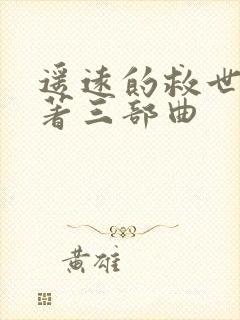 遥远的救世
著三部曲
黄雄